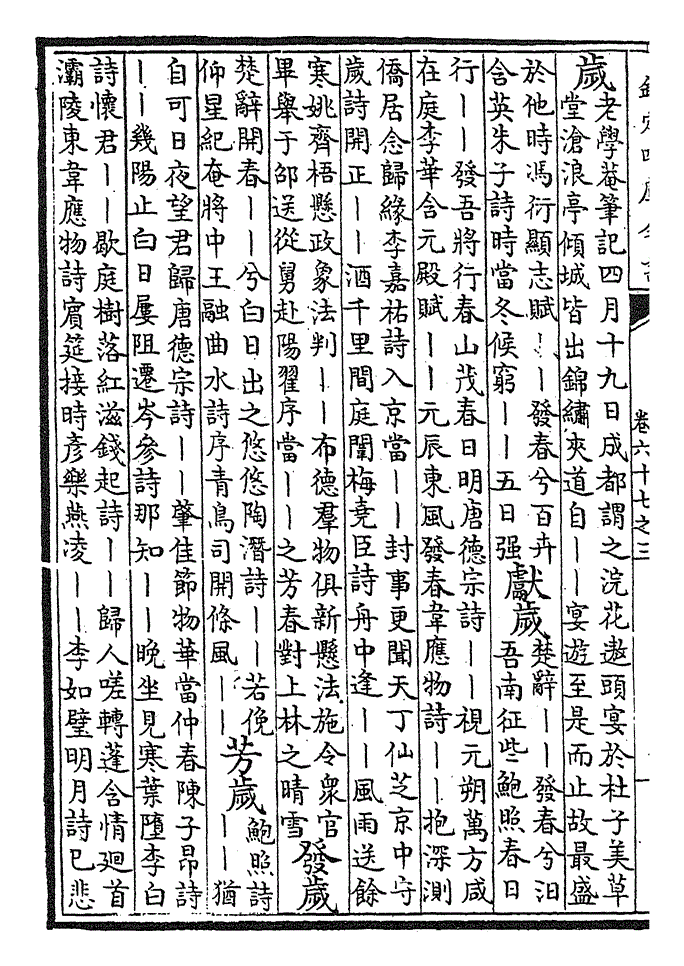 卷六十七之三
歲老學菴筆記四月十九日成都謂之浣花遨頭宴於杜子美草
堂滄浪亭傾城皆出錦繡夾道自——宴遊至是而止故最盛
於他時馮衍顯志賦——發春兮百卉
含英朱子詩時當冬候窮——五日强
獻歲楚辭——發春兮汨
吾南征些鮑照春日
行——發吾將行春山茂春日明唐德宗詩——視元朔萬方咸
在庭李華含元殿賦——元辰東風發春韋應物詩——抱深測
僑居念歸緣李嘉祐詩入京當——封事更聞天丁仙芝京中守
歲詩開正——酒千里間庭闈梅堯臣詩舟中逢——風雨送餘
寒姚齊梧懸政象法判——布德羣物俱新懸法施令衆官
畢舉于邵送從舅赴陽翟序當——之芳春對上林之晴雪
發歲
楚辭開春——兮白日出之悠悠陶潛詩——若俛
仰星紀奄將中王融曲水詩序青鳥司開條風——
芳歲鮑照詩
——猶
自可日夜望君歸唐德宗詩——肇佳節物華當仲春陳子昂詩
——幾陽止白日屢阻遷岑參詩那知——晚坐見寒葉墮李白
詩懷君——歇庭樹落紅滋錢起詩——歸人嗟轉蓬含情廻首
灞陵東韋應物詩賓筵接時彦樂燕淩——李如璧明月詩已悲